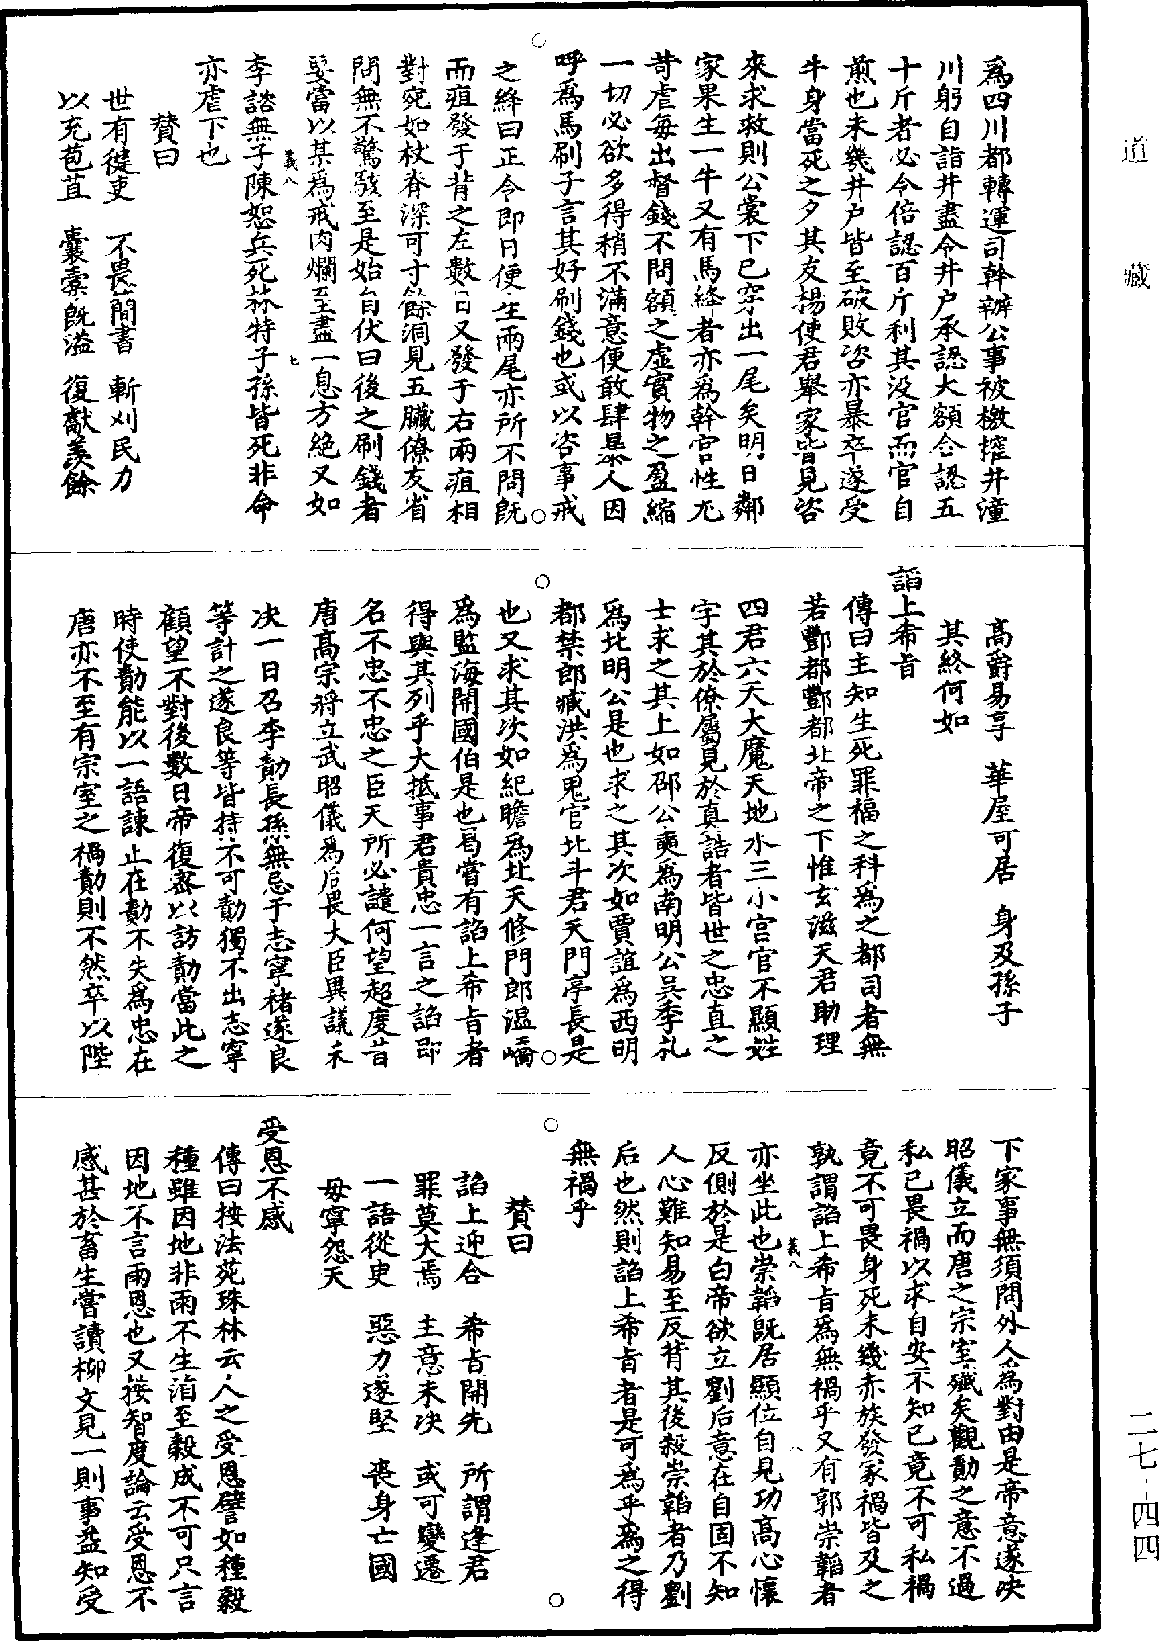 道藏
二七-四四
爲四川都轉運司幹辦公事被檄搉井潼
川躬自詣井盡令井户承認大額合認五
十斤者必令倍認百斤利其没官而官自
煎也未幾井戸皆至破敗咨亦暴卒遂受
牛身當死之夕其友揚使君舉家皆見咨
來求救則公裳下已穿出一尾矣明日鄰
家果生一牛又有馬絳者亦爲幹官性尤
苛虐每出督錢不問額之虛實物之盈縮
一切必欲多得稍不滿意便敢肆暴人因
呼爲馬刷子言其好刷錢也或以咨事戒
之絳曰正令即日便生兩尾亦所不問既
而疽發于背之左數日又發于右兩疽相
對宛如杖脊深可寸餘洞見五臟僚友省
問無不驚駭至是始自伏曰後之刷錢者
要當以某爲戒肉爛至盡一息方絶又如
義八
七
李諮無子陳恕兵死林特子孫皆死非命
亦虐下也
贊曰
世有健吏 不畏簡書 斬刈民力
以充苞苴 囊橐既溢 復獻羨餘
高爵易享 華屋可居 身及孫子
其終何如
諂上希旨
傳曰主知生死罪福之科爲之都司者無
若酆都酆都北帝之下惟玄滋天君助理
四君六天大魔天地水三小宫官不顯姓
字其於僚屬見於真誥者皆世之忠直之
士求之其上如邵公奭爲南明公吴季札
爲北明公是也求之其次如賈誼爲西明
都禁郎臧洪爲鬼官北斗君天門亭長是
也又求其次如紀瞻爲北天修門郎温嶠
爲監海開國伯是也曷嘗有諂上希旨者
得與其列乎大抵事君貴忠一言之諂即
名不忠不忠之臣天所必譴何望超度昔
唐高宗將立武昭儀爲后畏大臣異議未
决一日召李勣長孫無忌于志寧褚遂良
等計之遂良等皆持不可勣獨不出志寧
顧望不對後數日帝復密以訪勣當此之
時使勣能以一語諫止在勣不失爲忠在
唐亦不至有宗室之禍勣則不然卒以陛
下家事無須問外人爲對由是帝意遂决
昭儀立而唐之宗室殲矣觀勣之意不過
私已畏禍以求自安不知已竟不可私禍
竟不可畏身死未幾赤族發冢禍皆及之
孰謂諂上希旨爲無禍乎又有郭崇韜者
義八
八
亦坐此也崇韜既居顯位自見功高心懷
反側於是白帝欲立劉后意在自固不知
人心難知易至反背其後殺崇韜者乃劉
后也然則諂上希旨者是可爲乎爲之得
無禍乎
贊曰
諂上迎合 希旨開先 所謂逢君
罪莫大焉 主意未决 或可變遷
一語從臾 惡力遂堅 喪身亡國
毋寧怨天
受恩不感
傳曰按法苑珠林云人之受恩譬如種穀
種雖因地非雨不生洎至穀成不可只言
因地不言雨恩也又按智度論云受恩不
感甚於畜生嘗讀柳文見一則事益知受